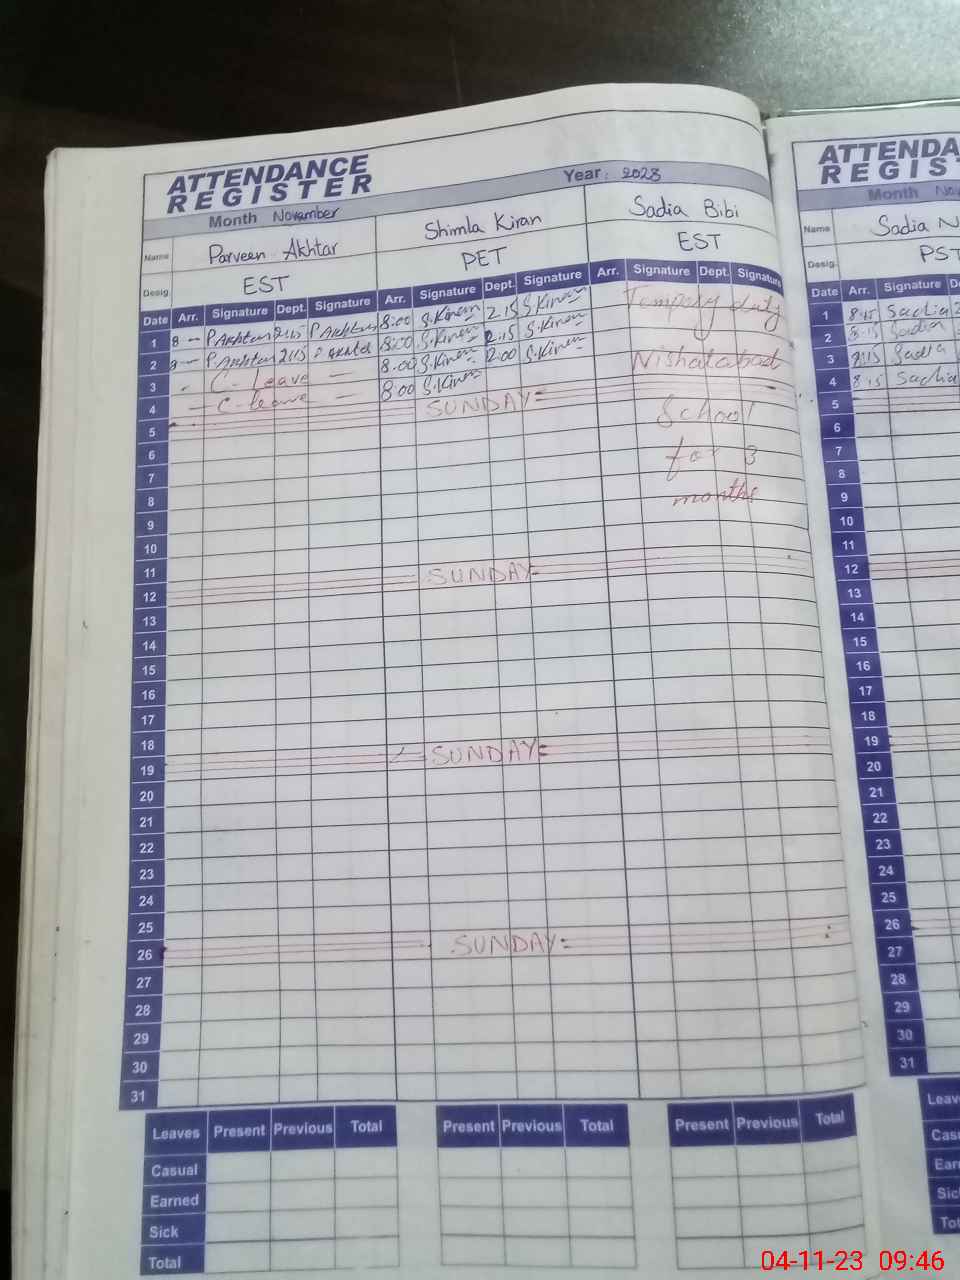 ATTENDANCE
REGISTER
Month November
Year: 2023
Name Parveen Akhtar Shimla Kiran Sadia Bibi
Desig. EST PET EST
Date Arr. Signature Dept. Signature Arr. Signature Dept. Signature Arr. Signature Dept. Signature
1 8 - P.Akhtar 2:15 P.Akhtar 8:00 S.Kiran 2.15 S.Kiran Tempory duty
2 8 - P.Akhtar 2:15 P.Akhtar 8:00 S.Kiran 2:15 S.Kiran
3 - C- Leave - 8.00 S.Kiran 2:00 S.Kiran Nishatabad
4 - C-leave - 8:00 S.Kiran
5 SUNDAY= School
6
7 for 3
8 months
9
10
11
12 SUNDAY=
13
14
15
16
17
18
19 SUNDAY=
20
21
22
23
24
25
26 SUNDAY=
27
28
29
30
31
Leaves Present Previous Total Present Previous Total Present Previous Total
Casual
Earned
Sick
Total
ATTENDA
REGIS
Month Nov
Name Sadia N
Desig. PST
Date Arr. Signature
1 8:15 Sadia
2 8:15 Sadia
3 8:15 Sadia
4 8:15 Sadia
5
6
7
8
9
10
11
12
13
14
15
16
17
18
19
20
21
22
23
24
25
26
27
28
29
30
31
Leav
Cas
Ear
Sic
Tot
04-11-23 09:46